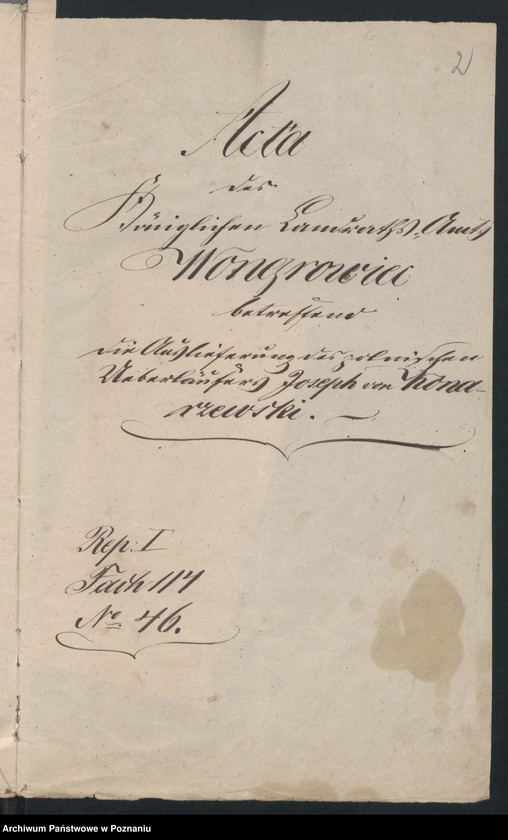 2
Acta
des
Königlichen Landraths-Amts
Wongrowiec
betreffend
die Auslieferung des polnischen
Ueberläufers Joseph von Kona-
rzewski.
Rep. I
Fach 117
No 46.
Archiwum Państwowe w Poznaniu